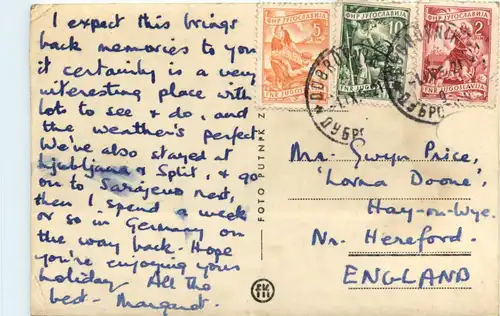 I expect this brings
back memories to you
it certainly is a very
interesting place with
lots to see & do, and
the weather's perfect
We've also stayed at
Ljubljana & Split, & go
on to Sarajevo next,
then I spend a week
or so in Germany on
the way back. Hope
you're enjoying yours
holiday. All the
best - Margaret.
FOTO PUTNIK
ФНР ЈУГОСЛАВИЈА
5
FNR JUGOSLAVIJA
ФНР ЈУГОСЛАВИЈА
10
FNR JUGOSLAVIJA
ФНР ЈУГОСЛАВИЈА
2
FNR JUGOSLAVIJA
DUBROVNIK
Mr. Gwyn Price,
'Lorna Doone',
Hay-on-Wye.
Nr. Hereford.
ENGLAND